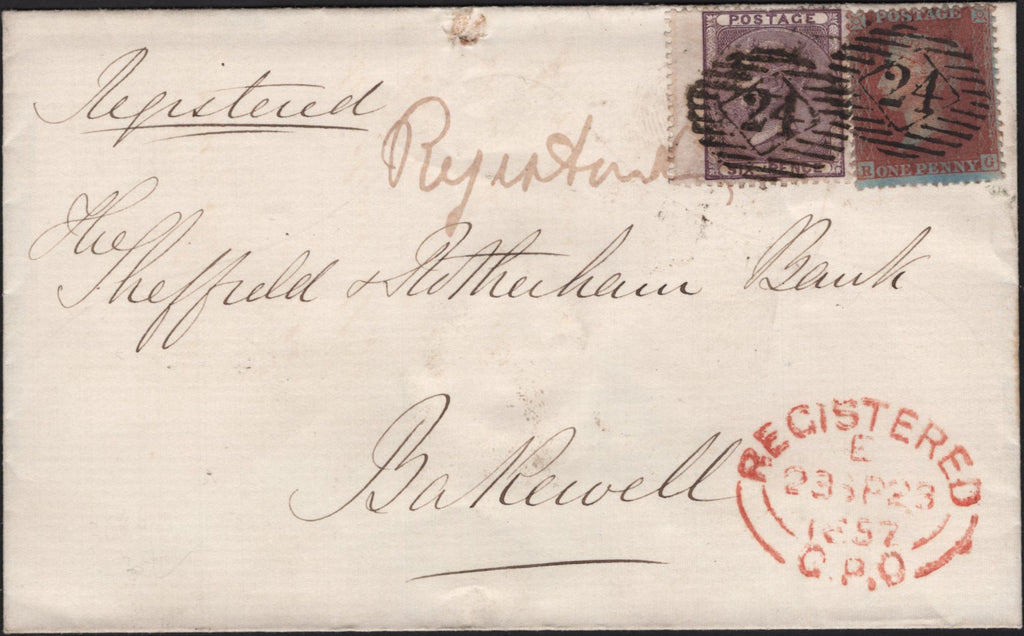 POSTAGE
24
SIX PENCE
POSTAGE
24
R ONE PENNY G
Registered
Registered
The
Sheffield & Rotherham Bank
Bakewell
REGISTERED
E
23 SP 23
1857
G.P.O